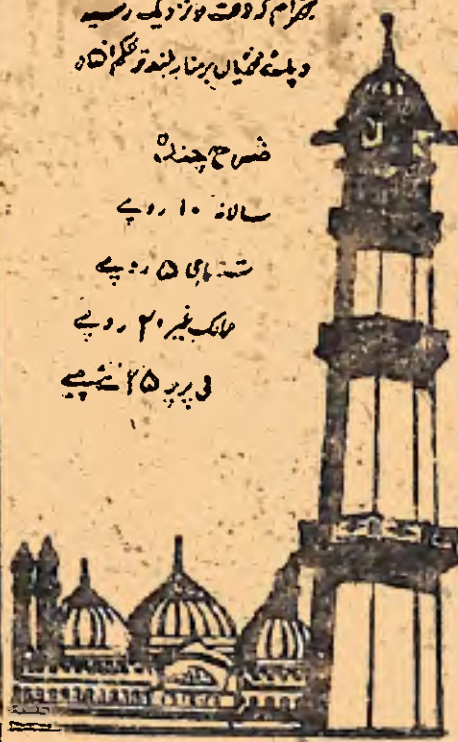 بخرام کہ وقت تو نزدیک رسید
و پائے محمدیاں برمنار بلند تر محکم افتاد
شرح چندہ
سالانہ ۱۰ روپے
ششماہی ۵ روپے
ممالک غیر ۲۰ روپے
فی پرچہ ۲۵ نئے پیسے